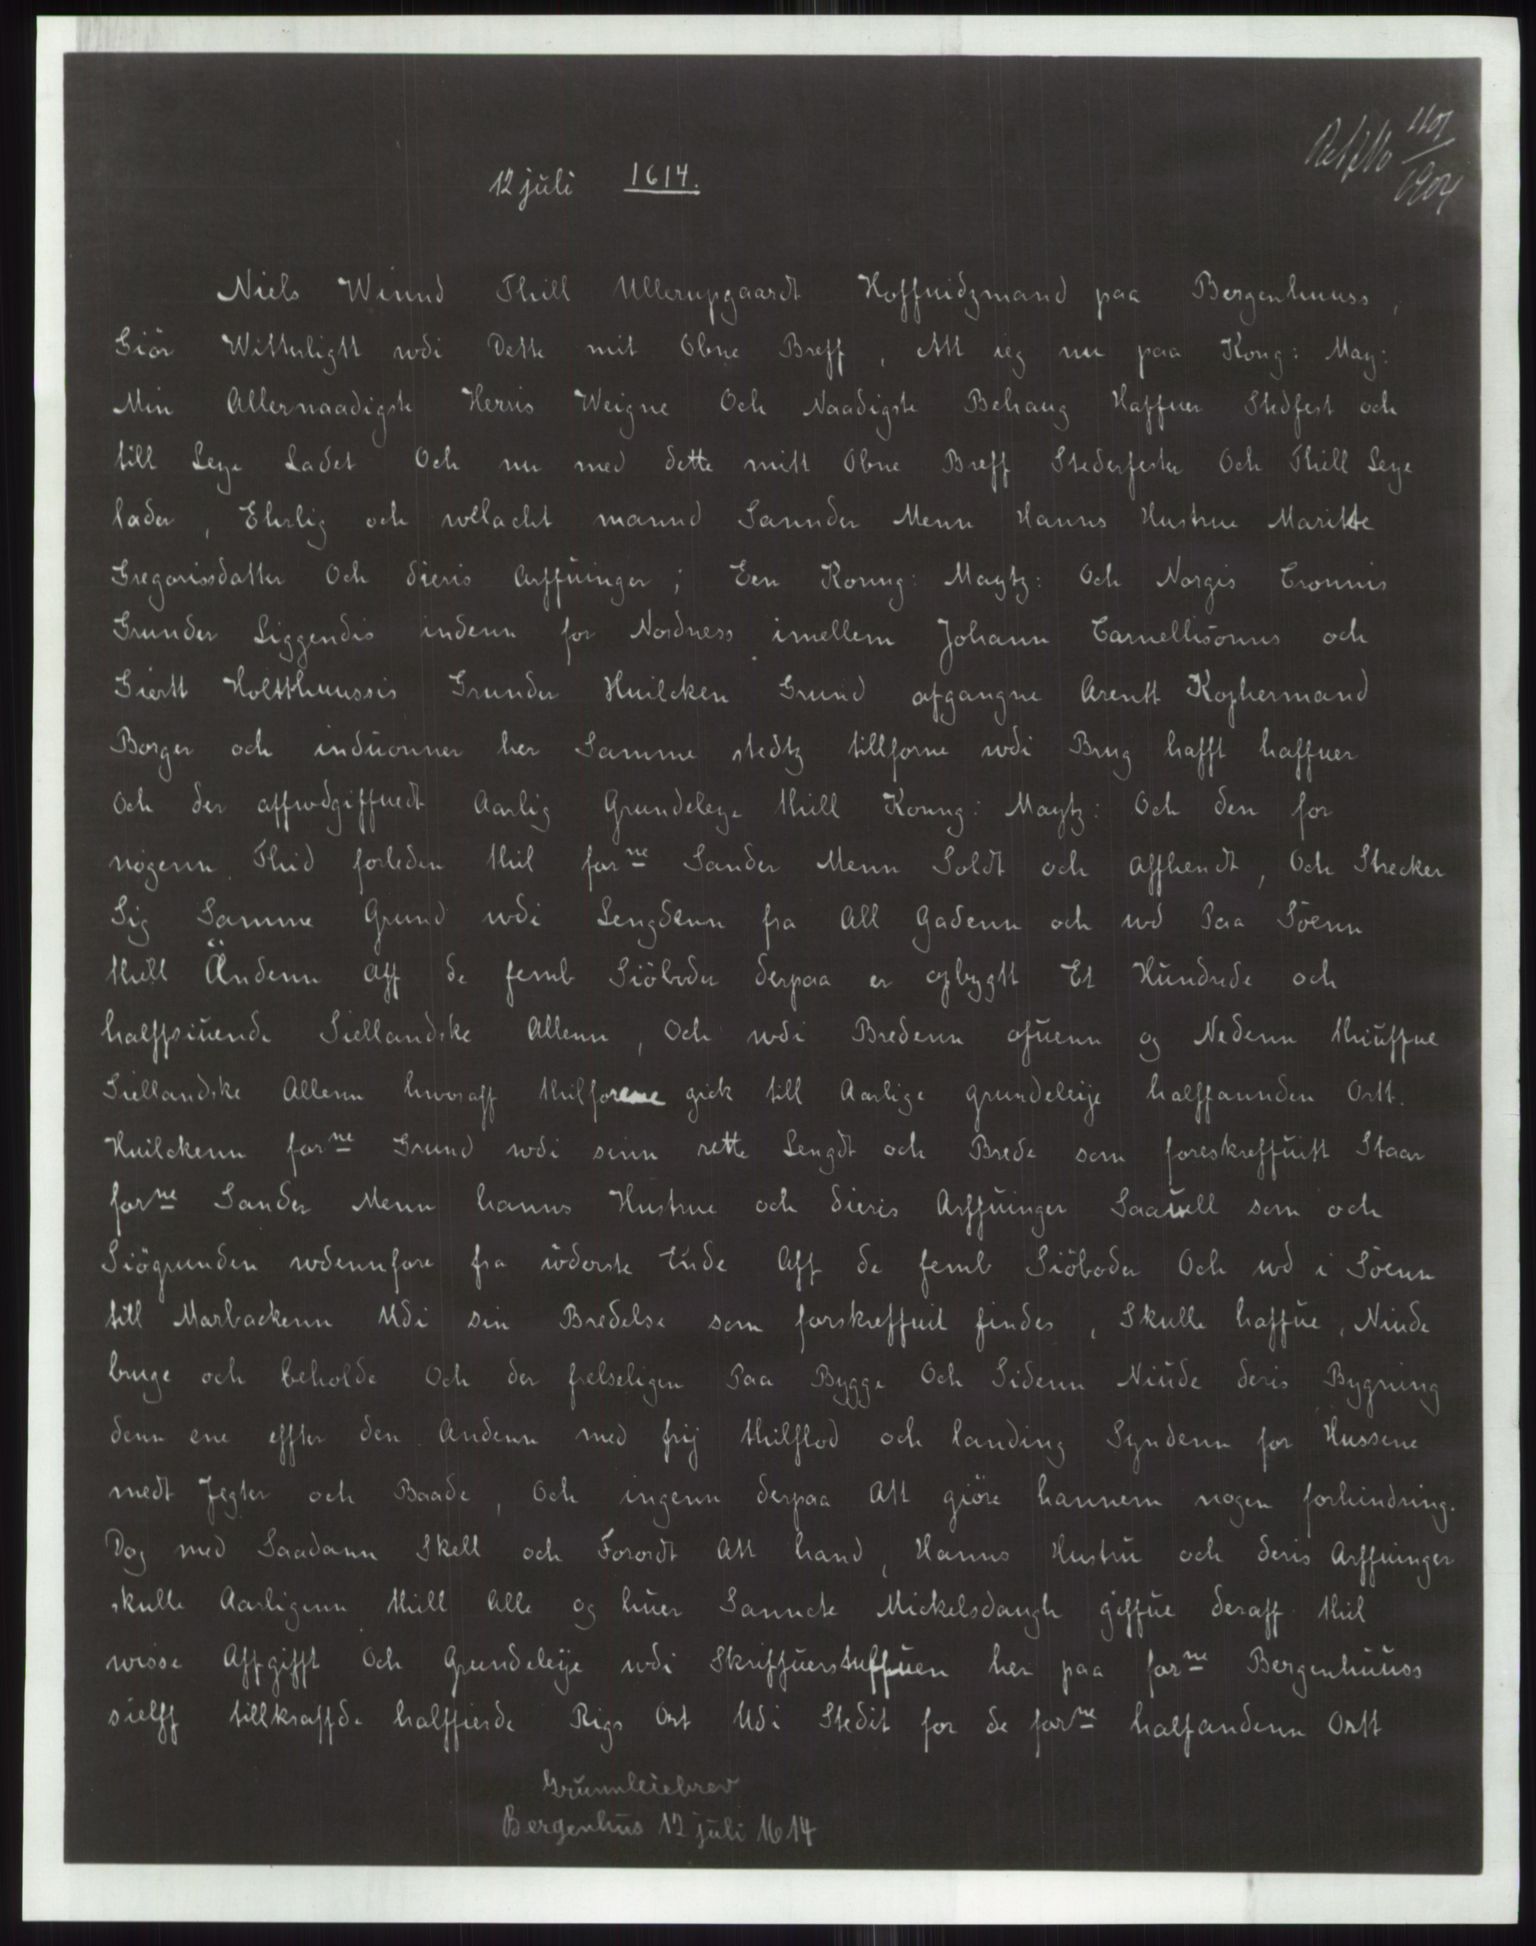 401
1904
12 juli 1614.
Niels Winnd Thill Ullerupgaardt Hoffuidzmand paa Bergenhuuss,
Giör Witterligtt wdi Dette mit Obne Breff, Att ieg nu paa Kong: May:
Min Allernaadigste Herris Weigne Och Naadigste Behaug Haffuer Stedfest och
till Leye Ladet Och nu med dette mitt Obne Breff Stederfester Och Thill Leye
lader, Ehrlig och welacht mannd Sannder Menn Hanns Hustrue Maritte
Gregorissdatter Och dieris Arffuinger; Een Konng: Maytz: Och Norgis Cronnis
Grunder Liggendis indenn for Nordness imellem Johann Carnellisönns och
Giertt Holtthuussis Grunder Huilcken Grund afgangne Arentt Kophermand
Borger och induonner her Samme stedtz tillforne wdi Brug hafft haffuer
Och der affwdgiffuedt Aarlig Grundeleye thill Konng: Maytz: Och den for
nogenn Thid forleden thil forne Sander Menn Soldt och Affhendt, Och Strecker
Sig Samme Grund wdi Lengdenn fra All Gadenn och wd Paa Söenn
thill Ändenn Aff de femb Siöboder derpaa er opbygtt Et Hundrede och
halffsiuende Siellandske Allenn, Och wdi Bredenn ofuenn og Nedenn thiuffue
Siellandske Allenn hworaff thilforene gick till Aarlige grundeleije halffannden Ortt.
Huilckenn forne Grund wdi sinn rette Lengdt och Brede som foreskreffuitt Staar
forne Sander Menn hanns Hustrue och dieris Arffuinger Saauell som och
Siögrunden wdennfore fra wderste Ende Aff de femb Siöboder Och wd i Söenn
till Marbackenn Udi sin Bredelse som forskreffuit findes, Skulle haffue, Niude
bruge och beholde Och der frelseligen Paa Bygge Och Sidenn Niude deris Bygning
denn ene effter den Andenn med frij thilflod och landing Syndenn for Hussene
medt Jegter och Baade, Och ingenn derpaa Att giöre hannem nogen forhindring.
Dog med Saadann Skell och Forordt Att hand, Hanns Hustru och deris Arffuinger
skulle Aarligenn thill Alle og huer Sanncte Mickelsdaugh giffue deraff thil
wisse Affgifft Och Grundeleije wdi Skriffuerstuffuen her paa forne Bergenhuuss
sielff tillkraffde halffierde Rigs Ort Udi Stedit for de forne halfandenn Ortt
Grunnleiebrev
Bergenhus 12 juli 1614